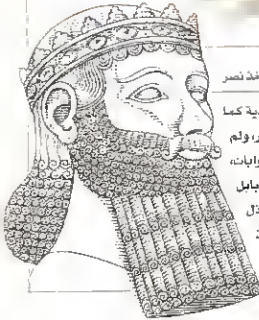 خذ نصر
دية كما
ر، ولم
وابات،
بابل
ذل